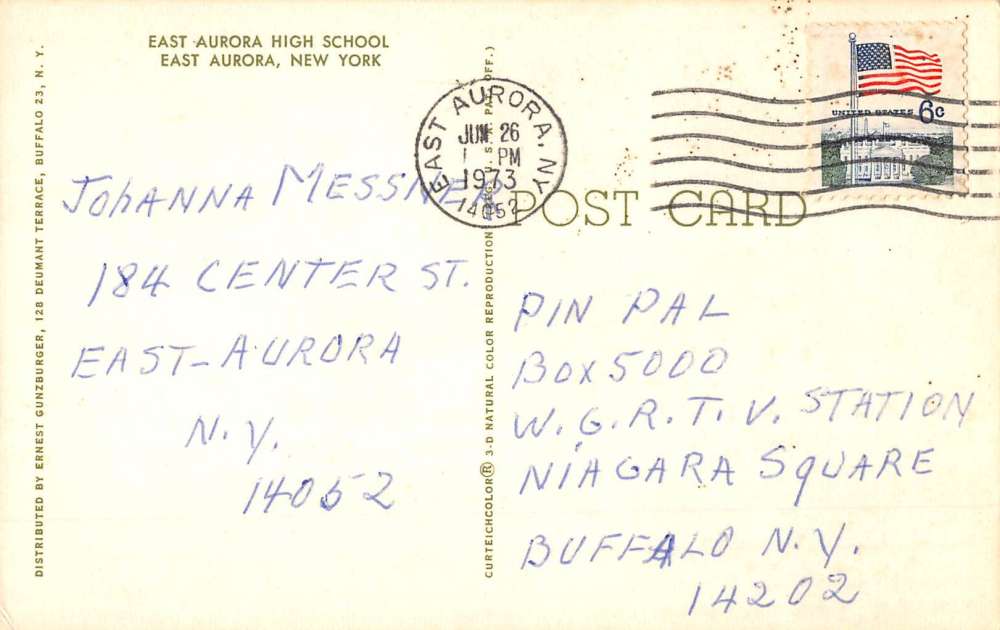 EAST AURORA HIGH SCHOOL
EAST AURORA, NEW YORK
DISTRIBUTED BY ERNEST GUNZBURGER, 128 DEUMANT TERRACE, BUFFALO 23, N. Y.
CURTEICHCOLOR® 3-D NATURAL COLOR REPRODUCTION U.S. PAT. OFF.)
EAST AURORA, N.Y.
JUN 26
PM
1973
14052
UNITED STATES 6c
POST CARD
JOhANNA MESSNER
184 CENTER ST.
EAST-AURORA
N.Y.
14052
PIN PAL
BOX 5000
W.G.R.T.V. STATION
NIAGARA SQUARE
BUFFALO N.Y.
14202